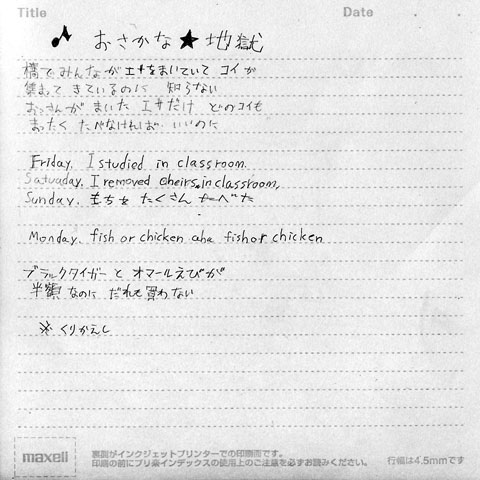 Title Date . .
♪ おさかな★地獄
橋でみんながエサをまいていて コイが
集まって きているのに 知らない
おっさんが まいた エサだけ どのコイも
まったく たべなければ いいのに
Friday. I studied in classroom.
Satuaday. I removed cheirs.in classroom,
Sunday. もちを たくさん たべた
Monday. fish or chicken aha fish or chicken
ブラックタイガーと オマールえびが
半額なのに だれも買わない
※ くりかえし
maxell
裏面がインクジェットプリンターでの印刷面です。
印刷の前にプリ楽インデックスの使用上のご注意を必ずお読みください。
行幅は4.5mmです